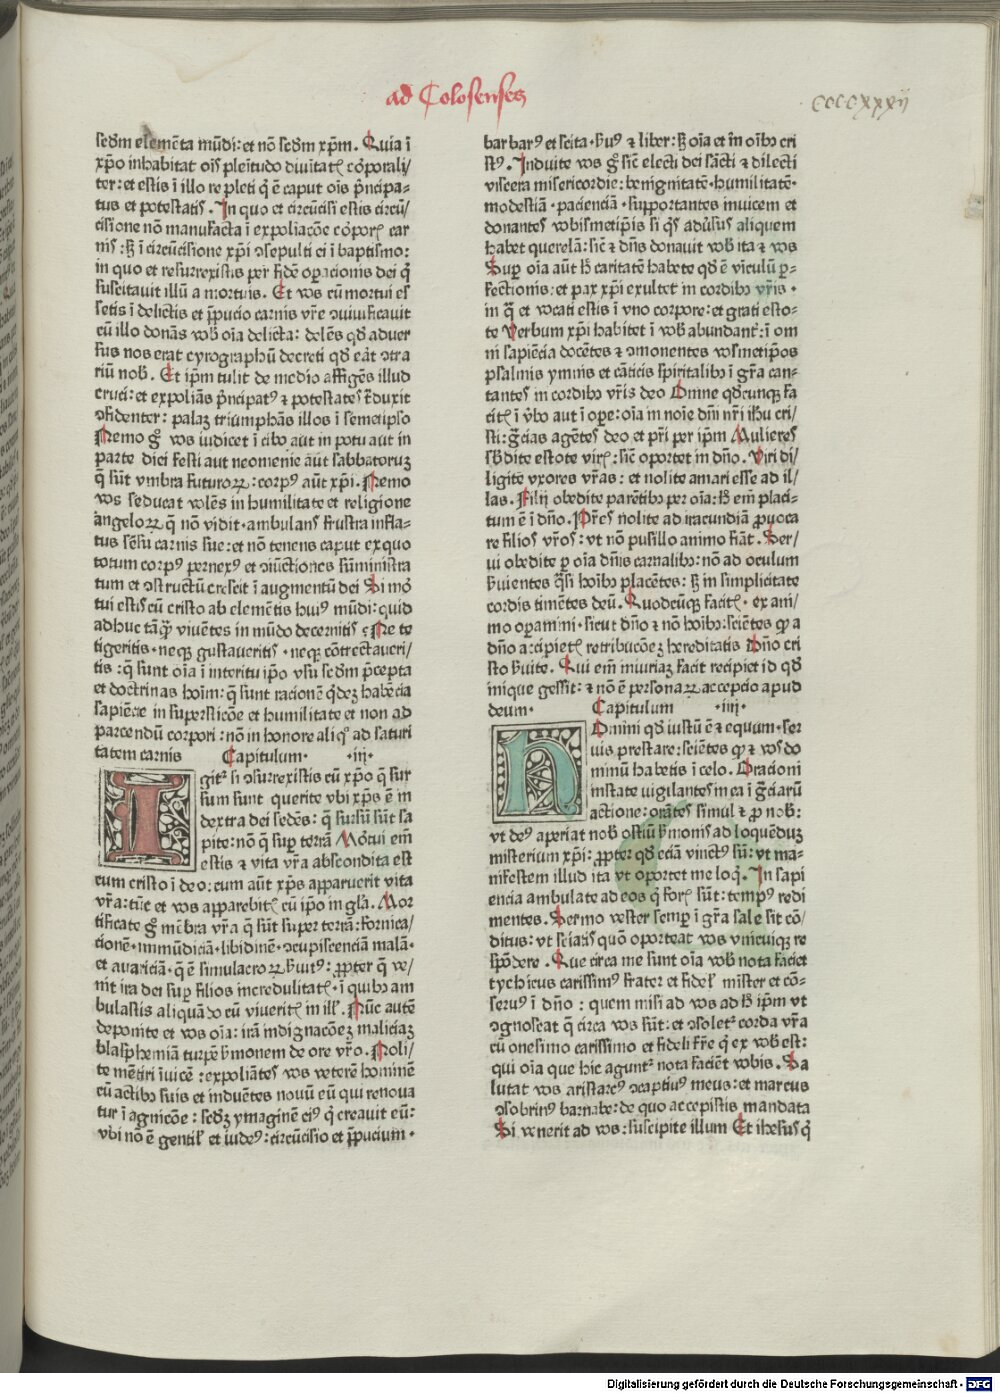 ad Colosenses
CCCCxxxij
sedm̄ elemēta mūdi: et nō sedm̄ xp̄m. Quia ī
xp̄o inhabitat oīs pleītudo diuītatꝭ corporali/
ter: et estis ī illo repleti q̄ ē caput oīs prīcipa⸗
tus et potestatis. In quo et circūcisi estis circū/
cisione nō manufacta ī expoliacōe corporꝭ car
nis: sꝫ ī circūcisione xp̄i ꝯsepulti ei ī baptismo:
in quo et resurrexistis per fidē oꝑacionis dei q̄
suscitauit illū a mortuis. Et vos cū mortui es
setis ī delictis et p̄pucio carnis vr̄e ꝯuiuificauit
cū illo donās vob̄ oīa delicta: delēs qd̄ aduer
sus nos erat cyrographū decreti qd̄ eāt ꝯtra
riū nob̄. Et ip̄m tulit de medio affigēs illud
cruci: et expoliās prīcipatꝰ ⁊ potestates t̄duxit
ꝯfidenter: palaꝫ triumphās illos ī semeipso
Nemo gͦ vos iudicet ī cibo aūt in potu aut in
parte diei festi aut neomenie aūt sabbatoruꝫ
q̄ sūt vmbra futuroꝝ: corpꝰ aūt xp̄i. Nemo
vos seducat volēs in humilitate et religione
angeloꝝ q̄ nō vidit · ambulans frustra infla⸗
tus sēsu carnis sue: et nō tenens caput ex quo
totum corpꝰ ꝑnexꝰ et ꝯiūctiones sūministra
tum et ꝯstructū crescit ī augmentū dei Si mō
tui estis cū cristo ab elemētis huiꝰ mūdi: quid
adhuc tāqͣ viuētes in mūdo decernitis ? Ne te
tigeritis · neqꝫ gustaueritis · neqꝫ cōtrectaueri/
tis: q̄ sunt oīa ī interitu ip̄o vsu sedm̄ p̄cepta
et doctrinas hoīm: q̄ sunt racionē q̄deꝫ habēcia
sapiēcie in supersticōe et humilitate et non ad
parcendū corpori: nō in honore aliqͦ ad saturi
tatem carnis Capitulum · · iii ·
Igitꝛ si ꝯsurrexistis cū xp̄o q̄ sur
sum sunt querite vbi xp̄s ē in
dextra dei sedēs: q̄ sursū sūt sa
pite: nō q̄ suꝑ terrā Mōtui em̄
estis ⁊ vita vr̄a abscondita est
cum cristo ī deo: cum aūt xp̄s apparuerit vita
vr̄a: tūc et vos apparebitꝭ cū ip̄o in gl̄a. Mor
tificate gͦ mēbra vr̄a q̄ sūt super terrā: fornica/
cionē · immūdiciā · libidinē · ꝯcupiscenciā malā ·
et auariciā · q̄ ē simulacroꝝ ẜuitꝰ: ꝓpter q̄ ve/
nit ira dei suꝑ filios incredulitatꝭ · ī quibꝫ am
bulastis aliquādo cū viueritꝭ in ill'. Nūc autē
deponite et vos oīa: irā indignacōeꝫ maliciaꝫ
blasphemiā turpē ẜmonem de ore vr̄o. Noli/
te mētiri īuicē: expoliātes vos veterē hominē
cū actibꝫ suis et induētes nouū eū qui renoua
tur ī agnicōe: sedꝫ ymaginē eiꝰ q̄ creauit eū:
vbi nō ē gentil' et iudeꝰ: circūcisio et p̄pucium ·
barbarꝰ et scita · ẜuꝰ ⁊ liber: sꝫ oīa et in oībꝫ cri
stꝰ. Induite vos gͦ sīc electi dei sācti ⁊ dilecti
viscera misericordie: benignitatē · humilitatē ·
modestiā · pacienciā · supportantes inuicem et
donantes vobismetip̄is si q̄s aduꝰsus aliquem
habet querelā: sīc ⁊ dn̄s donauit vob̄ ita ⁊ vos
Suꝑ oīa aūt hͦ caritatē habete qd̄ ē vīculū ꝑ⸗
fectionis: et pax xp̄i exultet in cordibꝫ vr̄is ·
in q̄ et vocati estis ī vno corpore: et grati esto⸗
te Verbum xp̄i habitet ī vob̄ abundant̄: ī om
ni sapiēcia docētes ⁊ ꝯmonentes vosmetip̄os
psalmis ymnis et cāticis spiritalibꝫ ī gr̄a can⸗
tantes in cordibꝫ vr̄is deo Omne qd̄cunqꝫ fa
citꝭ ī ṽbo aut ī oꝑe: oīa in noīe dn̄i nr̄i ihū cri/
sti: gr̄cias agētes deo et pr̄i per ip̄m Mulieres
sb̄dite estote virꝭ: sīc oportet in dn̄o. Viri di/
ligite vxores vr̄as: et nolite amari esse ad il/
las. Filij obedite parētibꝫ per oīa: hͦ em̄ placi⸗
tum ē ī dn̄o. Pr̄es nolite ad iracundiā ꝓuoca
re filios vr̄os: vt nō pusillo animo fiāt. Ser/
ui obedite ꝑ oīa dn̄is carnalibꝫ: nō ad oculum
ẜuientes q̄si hoībꝫ placētes: sꝫ in simplicitate
cordis timētes deū. Quodcūqꝫ facitꝭ · ex ani/
mo oꝑamini · sicut dn̄o ⁊ nō hoībꝫ: sciētes qꝫ a
dn̄o accipietꝭ retribucōeꝫ hereditatis Dn̄o cri
sto ẜuite. Qui em̄ iniuriaꝫ facit recipiet id qd̄
inique gessit: ⁊ nō ē personaꝝ accepcio apud
deum · Capitulum · iiij ·
Domini qd̄ iustū ē ⁊ equum · ser
uis prestare: sciētes qꝫ ⁊ vos do
minū habetis ī celo. Oracioni
instate vigilantes in ea ī gr̄ciarū
actione: orātes simul ⁊ ꝓ nob̄:
vt deꝰ aperiat nob̄ ostiū ẜmonis ad loquēduꝫ
misterium xp̄i: ꝓpter qd̄ eciā vinctꝰ sū: vt ma⸗
nifestem illud ita vt oportet me loqͥ. In sapi
encia ambulate ad eos q̄ forꝭ sūt: tempꝰ redi
mentes. Sermo vester semꝑ ī gr̄a sale sit cō/
ditus: vt sciatis quō oporteat vos vnicuiqꝫ re
spōdere. Que circa me sunt oīa vob̄ nota faciet
tychicus carissimꝰ frater et fidel' mīster et cō⸗
seruꝰ ī dn̄o: quem misi ad vos ad hͦ ip̄m vt
ꝯgnoscat q̄ circa vos sūt: et ꝯsoletꝛ corda vr̄a
cū onesimo carissimo et fideli fr̄e q̄ ex vob̄ est:
qui oīa que hic aguntꝛ nota faciēt vobis. Sa
lutat vos aristarcꝰ ꝯcaptiuꝰ meus: et marcus
ꝯsobrinꝰ barnabe: de quo accepistis mandata
Si venerit ad vos: suscipite illum Et ihesus q̄
Digitalisierung gefördert durch die Deutsche Forschungsgemeinschaft - DFG